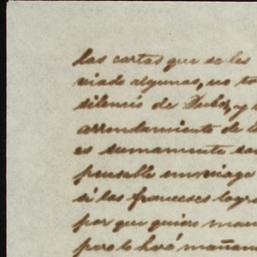 las cartas que se les
viado algunas, no to
silencio de Dubo, y
arrendamiento de l
es sumamente
un viage
si los franceses logr
por que quiero man
pero lo hará mañan